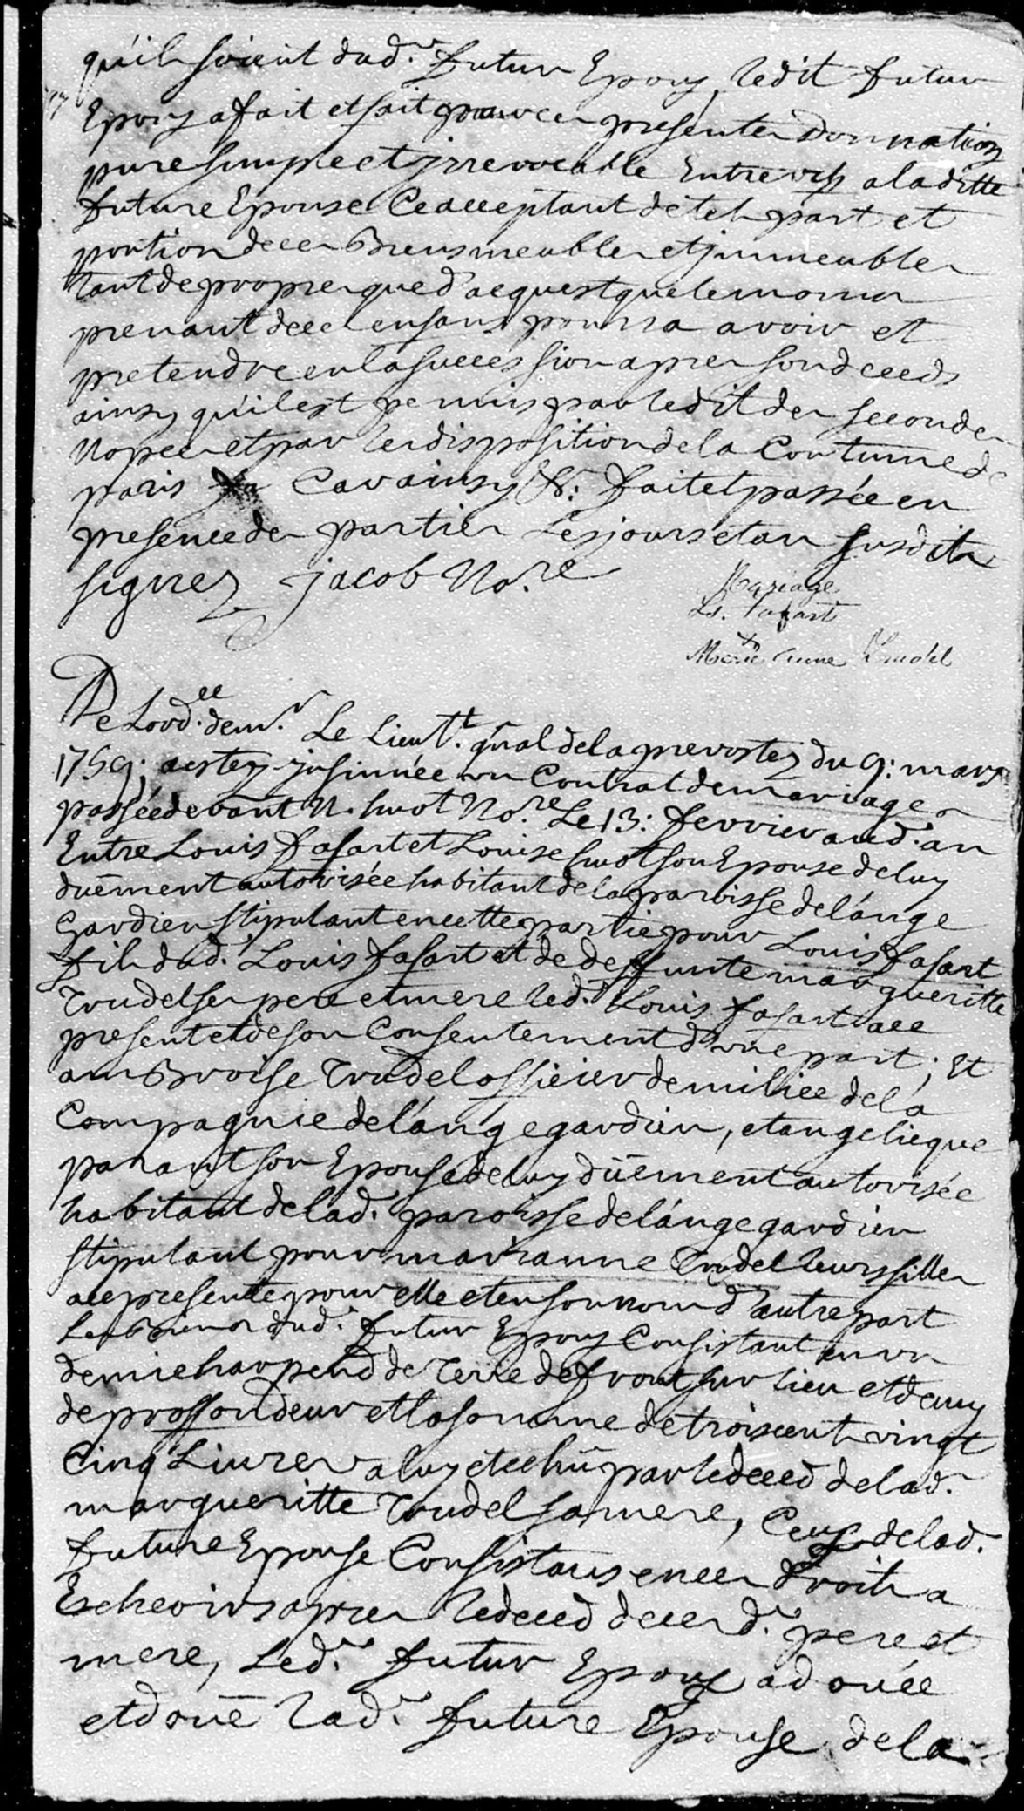 qu'il soient dud.t futur Epoux, ledit futur
Epoux a fait et fait par ce presente Donnation
pure simple et jrrevocable Entre vifs a laditte
future Epouse Ce acceptant de tel part et
portion de ces Biens meubles et jmmeubles
tant de propre que d'acquest que le moins
prenant de ces enfans pourra avoir et
pretendre en la succession apres son deceds
ainsy qu'il est permis par ledit des seconde
Nopces et par les disposition de la Coutume de
paris Car ainsy &c: fait et passée en
presence des parties Les jours et an susdits
signez Jacob No.re
Mariage
Ls. fafart
Marie anne Trudel
De Lord.ee de m.r Le Lieut.t gnal de la prevostez du 9: mars
1759; aestez jnsinuée un Contrat de mariage
passée devant N. huot No.re Le 13: fevrier aud. an
Entre Louis fafart et Louise huot son Epouse de luy
duëment autorisée habitant de la paroisse de l'ange
Gardien stipulant en cette partie pour Louis fafart
fils dud. Louis fafart et de deffunte margueritte
Trudel ses pere et mere led.t Louis fafart a ce
present et de son Consentement d'une part; Et
amBroise Trudel officier de milice de la
Compagnie de l'ange gardien, et angelicque
parant son Epouse de luy düement autorisée
habitant de lad. paroisse de l'ange gardien
stipulant pour marianne Trudel leurs filles
ace presente pour elle et en son nom d'autre part
Les Biens dud.t futur Epoux Consistant en un
demie harpend de Terre de front sur lieu et demy
de proffondeur et la somme de trois cent vingt
Cinq Livres a luy etechû par le deced de lad.
margueritte Trudel sa mere, Ceux de lad.
future Epouse Consistans en ces droits a
Escheoirs apres le deced de ces d.t pere et
mere, Led.t futur Epoux a douée
et doüe Lad.t future Epouse de la